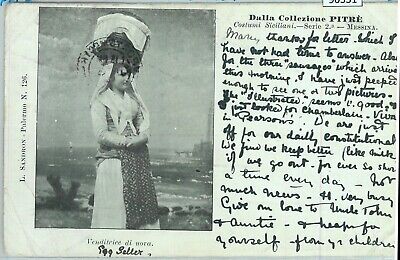 90551
Dalla Collezione PITRÈ
Costumi Siciliani. — Serie 2.ª — MESSINA.
Many thanks for letter - which I
have not had time to answer - Also
for the three "sausages" which arrived
this morning, I have just peeped
enough to see one or two pictures -
The "Illustrated" seems v. good, I
just looked for Chamberlain - Viva
Pearsons! We are just
off for our daily constitutional
We find we keep better (like milk
if we go out - for ever so short
a time every day - Not
much news - V. very busy
Give our love to Uncle John
& Auntie - & heaps for
yourself from yr children
L. SANDRON - Palermo N. 126.
Venditrice di uova.
Egg Seller.